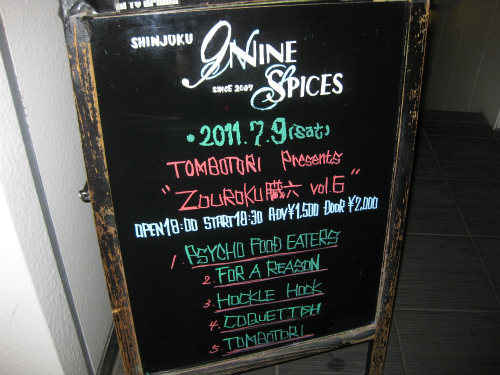 SHINJUKU
9NINE
SINCE 2007
SPICES
• 2011.7.9(sat)
TOMBOTORI Presents
"ZOUROKU職六 vol.6"
OPEN18:00 START18:30 ADV¥1,500 DooR ¥2,000
1. PSYCHO FOOD EATERS
2. FOR A REASON
3. HOCKLE HOCK
4. COQUETTISH
5. TOMBOTORI